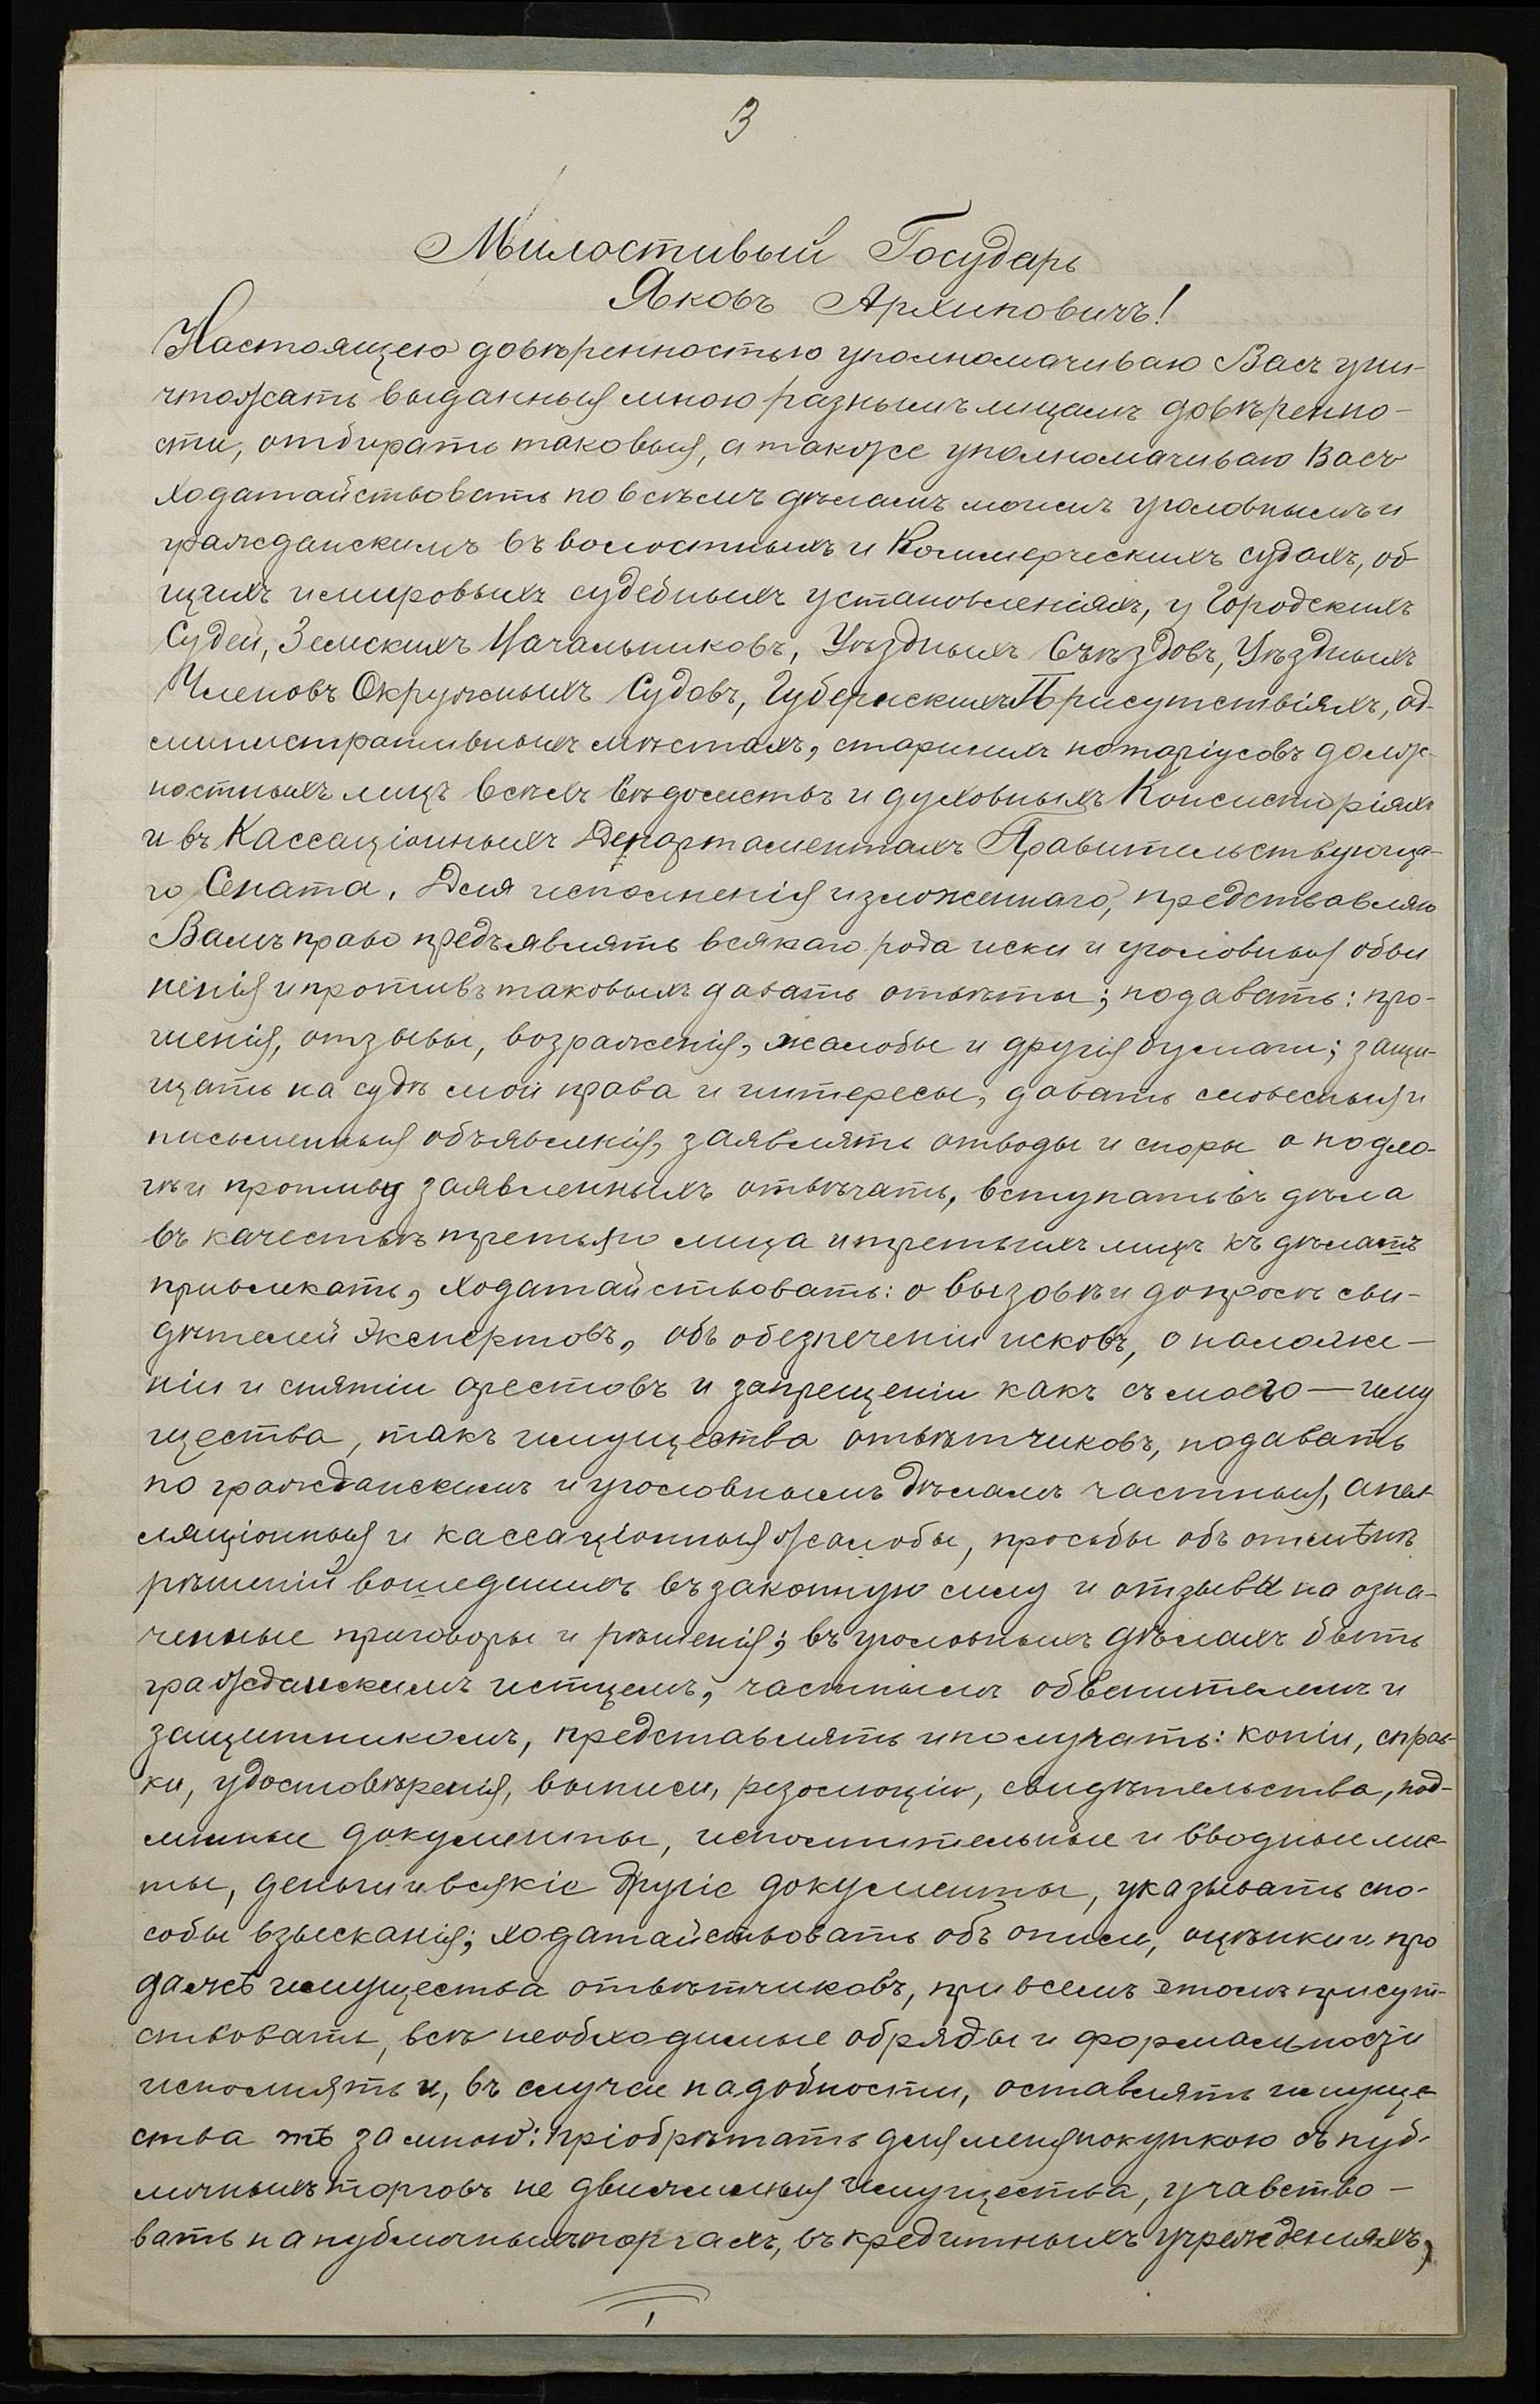 3
Милостивый Государь
Яковъ Архиповичъ!
Настоящею довѣренностью уполномачиваю Васъ уни-
чтожать выданныя мною разнымъ лицамъ довѣренно-
сти, отбирать таковыя, а также уполномачиваю Васъ
ходатайствовать по всѣмъ дѣламъ моимъ уголовнымъ и
гражданскимъ въ волостныхъ и Коммерческихъ судахъ, об
щихъ и мировыхъ судебныхъ установленіяхъ, у Городскихъ
Судей, Земскихъ Начальниковъ, Уѣздныхъ Съѣздовъ, Уѣздныхъ
Членовъ Окружныхъ Судовъ, Губернскихъ Присутствіяхъ, ад-
министративныхъ мѣстахъ, старшихъ нотаріусовъ долж-
ностныхъ лицъ всѣхъ вѣдомствъ и духовныхъ Консисторіяхъ
и въ Кассаціонныхъ Департаментахъ Правительствующа-
го Сената. Для исполненія изложеннаго, представляю
Вамъ право предъявлять всякаго рода иски и уголовныя обви
ненія и противъ таковыхъ давать отвѣты; подавать: про-
шенія, отзывы, возраженія, жалобы и другія бумаги; защи-
щать на судѣ мои права и интересы, давать словесныя и
письменныя объявленія, заявлять отводы и споры о подло-
гѣ и противу заявленныхъ отвѣчать, вступать въ дѣла
въ качествѣ третьяго лица и третьихъ лицъ къ дѣламъ
привлекать, ходатайствовать: о вызовѣ и допросѣ сви-
дѣтелей экспертовъ, объ обезпеченіи исковъ, о наложе-
ніи и снятіи арестовъ и запрещеніи какъ съ моего — иму
щества, такъ имущества отвѣтчиковъ, подавать
по гражданскимъ и уголовнымъ дѣламъ частныя, апел-
ляціонныя и кассаціонныя жалобы, просьбы объ отмѣнѣ
рѣшеній вошедшихъ въ законную силу и отзывы на озна-
ченные приговоры и рѣшенія; въ уголовныхъ дѣлахъ быть
гражданскимъ истцемъ, частнымъ обвенителемъ и
защитникомъ, представлять и получать: копіи, справ-
ки, удостовѣренія, выписи, резолюціи, свидѣтельства, под-
линные документы, исполнительные и вводные лис-
ты, деньги и всякіе другіе документы, указывать спо-
собы взысканія; ходатайствовать объ описи, оцѣнки и про
дажѣ имущества отвѣтчиковъ, при всемъ этомъ присут-
ствовать, всѣ необходимые обряды и формальности
исполнять и, въ случаѣ надобности, оставлять имуще-
ства тѣ за мною: пріобрѣтать для меня покупкою съ пуб-
личныхъ торговъ не движимыя имущества, учавство-
вать на публичныхъ торгахъ, въ кредитныхъ учрежденияхъ,
1